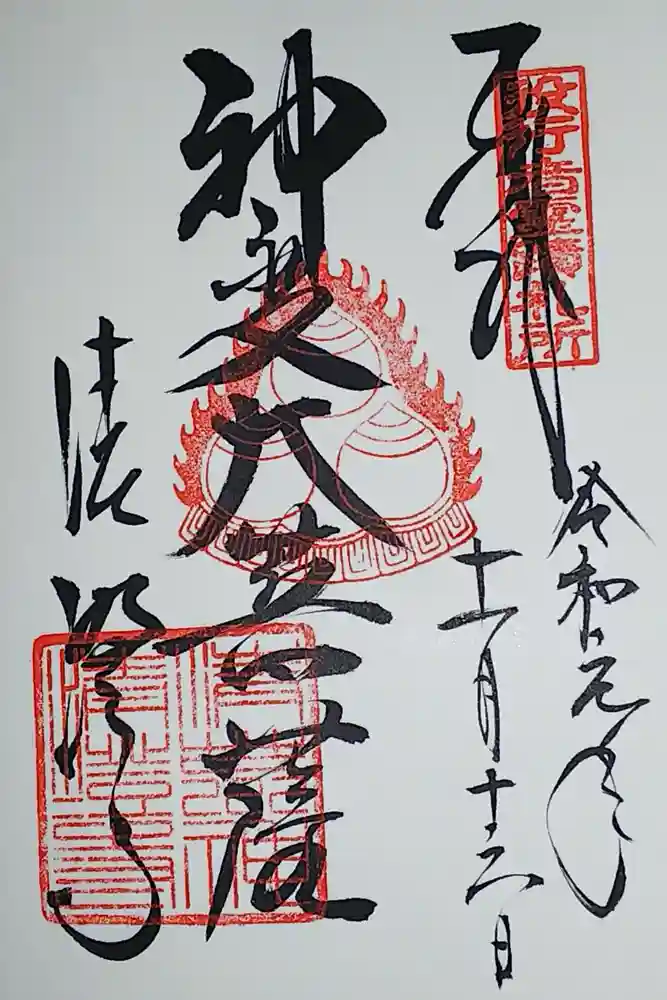 奉拝
役行者霊蹟札所
令和元年
十一月十六日
神変大菩薩
清澄寺